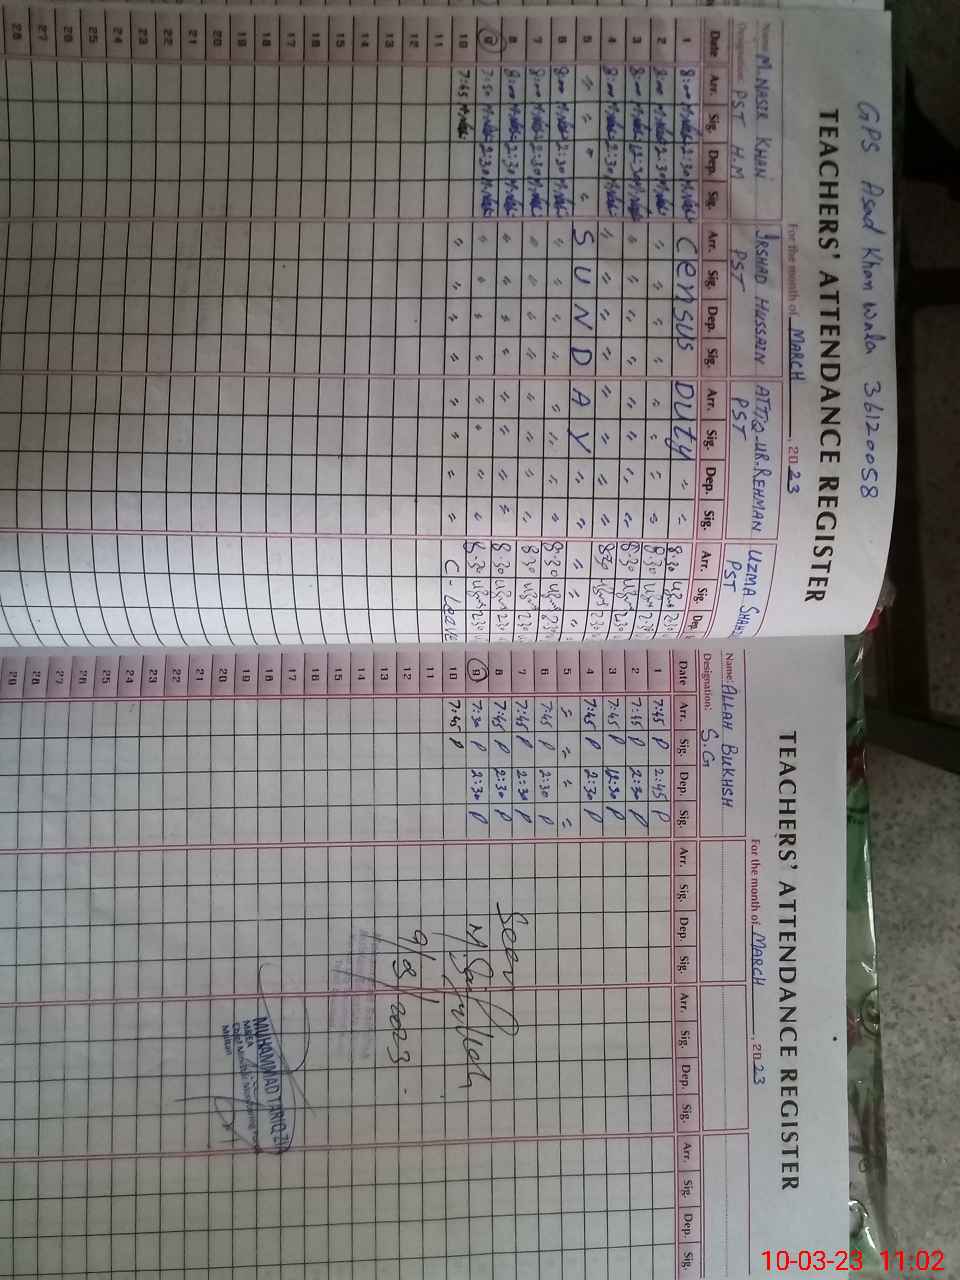 GPS Asad Khan Wala 36120058
TEACHERS' ATTENDANCE REGISTER
For the month of MARCH, 2023
Name: M.NASIR KHAN IRSHAD HUSSAIN ATTIQ-UR-REHMAN UZMA
Designation: PST H.M PST PST PST
Date Arr. Sig. Dep. Sig. Arr. Sig. Dep. Sig. Arr. Sig. Dep. Sig. Arr. Sig. Dep.
1 8:00 2:30 Census Duty " " 8:30 2:30
2 8:00 2:30 " " " " " " " " 8:30 2:30
3 8:00 12:30 " " " " " " " " 8:30 2:30
4 8:00 2:30 " " " " " " " " 8:30 2:30
5 " " " " S U N D A Y " " " " "
6 8:00 2:30 " " " " " " " " 8:30 2:30
7 8:00 2:30 " " " " " " " " 8:30 2:30
8 8:00 2:30 " " " " " " " " 8:30 2:30
9 7:50 2:30 " " " " " " " " 8:30 2:30
10 7:45 " " " " " " " " C-Leave
11
12
13
14
15
16
17
18
19
20
21
22
23
24
25
26
27
28
TEACHERS' ATTENDANCE REGISTER
For the month of MARCH, 2023
Name: ALLAH BUKHSH
Designation: S.G
Date Arr. Sig. Dep. Sig. Arr. Sig. Dep. Sig. Arr. Sig. Dep. Sig. Arr. Sig. Dep. Sig.
1 7:45 P 2:45 P
2 7:45 P 2:30 P
3 7:45 P 12:30 P
4 7:45 P 2:30 P
5 " " " "
6 7:45 P 2:30 P
7 7:45 P 2:30 P
8 7:45 P 2:30 P
9 7:30 P 2:30 P
10 7:45 P
11
12
13
14
15
16
17
18
19
20
21
22
23
24
25
26
27
28
29
Seen
9/3/2023
MUHAMMAD TARIQ
MEA
Multan
10-03-23 11:02